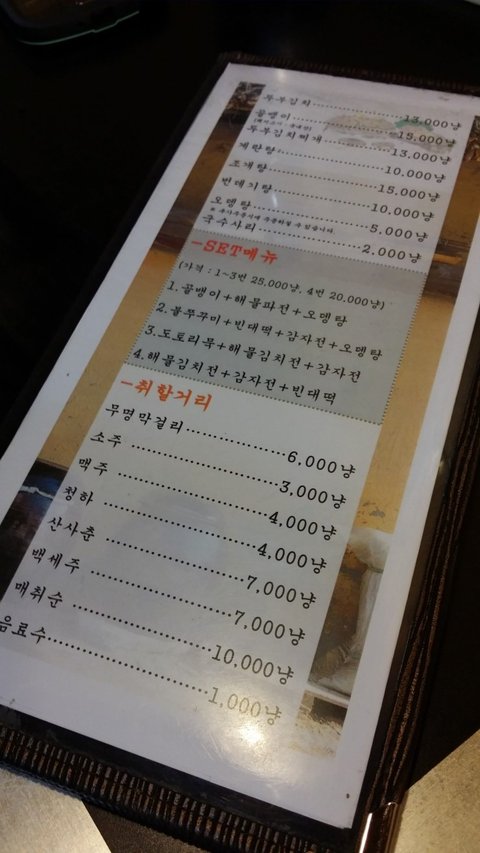 두부김치 13,000냥
골뱅이 15,000냥
두부김치찌개 13,000냥
계란탕 10,000냥
조개탕 15,000냥
번데기탕 10,000냥
오뎅탕 5,000냥
국수사리 2,000냥
-SET메뉴
(가격 : 1~3번 25,000냥, 4번 20,000냥)
1.골뱅이+해물파전+오뎅탕
2.불쭈꾸미+빈대떡+감자전+오뎅탕
3.도토리묵+해물김치전+감자전
4.해물김치전+감자전+빈대떡
-취할거리
무명막걸리 6,000냥
소주 3,000냥
맥주 4,000냥
청하 4,000냥
산사춘 7,000냥
백세주 7,000냥
매취순 10,000냥
음료수 1,000냥